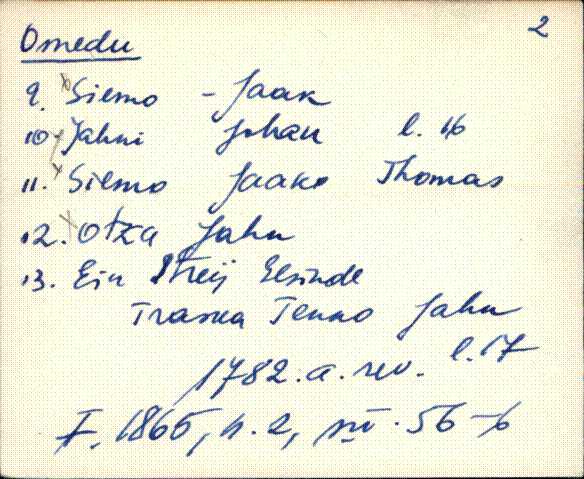 2
Omedu
9. Siemo - Jaak
10. Jahni Johan l. 16
11. Siemo Jaako Thomas
12. Otza Jahn
13. Ein Streij Elsinde
Trasna Tenno Jahn
1782. a. rev. l. 17
F. 1865, n. 2, 56-6